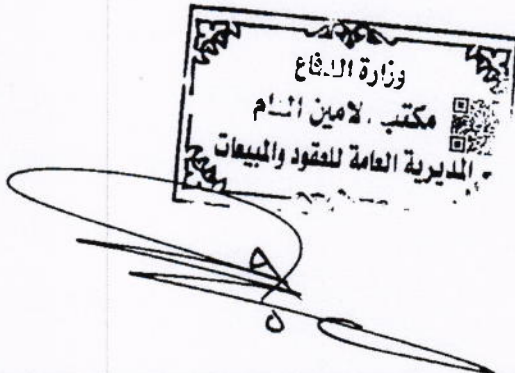 وزارة الدفاع
مكتب الامين العام
المديرية العامة للعقود والمبيعات